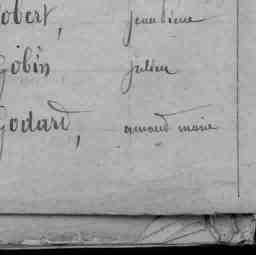 obert, jean pierre
Gobin julien
Godard, amand marie